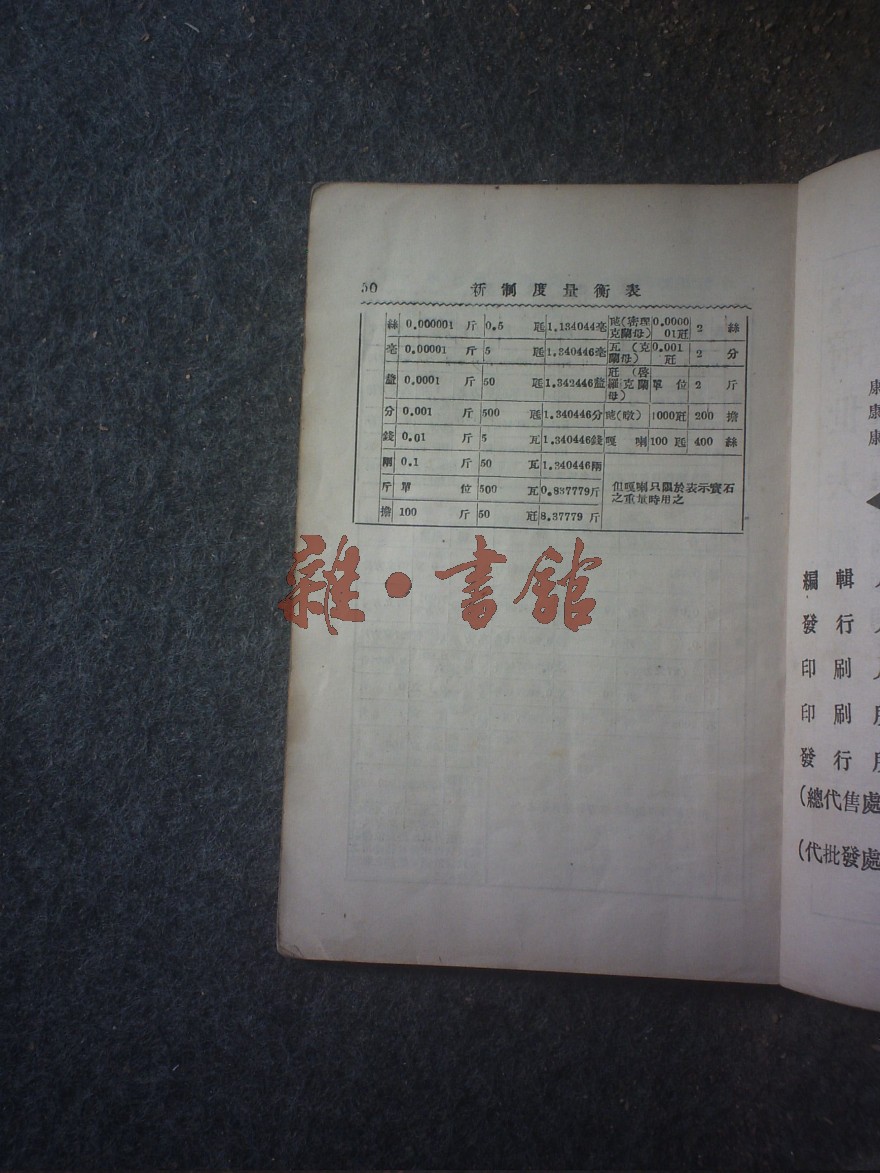 50 新制度量衡表
絲 0.000001 斤 0.5 瓱 1.134044毫 瓱(密理克蘭母) 0.000001瓩 2 絲
毫 0.00001 斤 5 瓱 1.340446毫 瓦(克蘭母) 0.001瓩 2 分
釐 0.0001 斤 50 瓱 1.342446釐 瓩(啓羅克蘭母) 單位 2 斤
分 0.001 斤 500 瓱 1.340446分 瓲(噸) 1000瓩 200 擔
錢 0.01 斤 5 瓦 1.340446錢 嘎喇 100 瓱 400 絲
兩 0.1 斤 50 瓦 1.340446兩
斤 單位 500 瓦 0.837779斤 但嘎喇只限於表示寶石
之重量時用之
擔 100 斤 50 瓩 8.37779 斤
雜·書館
康
康
康
編輯人
發行人
印刷人
印刷所
發行所
(總代售處
(代批發處